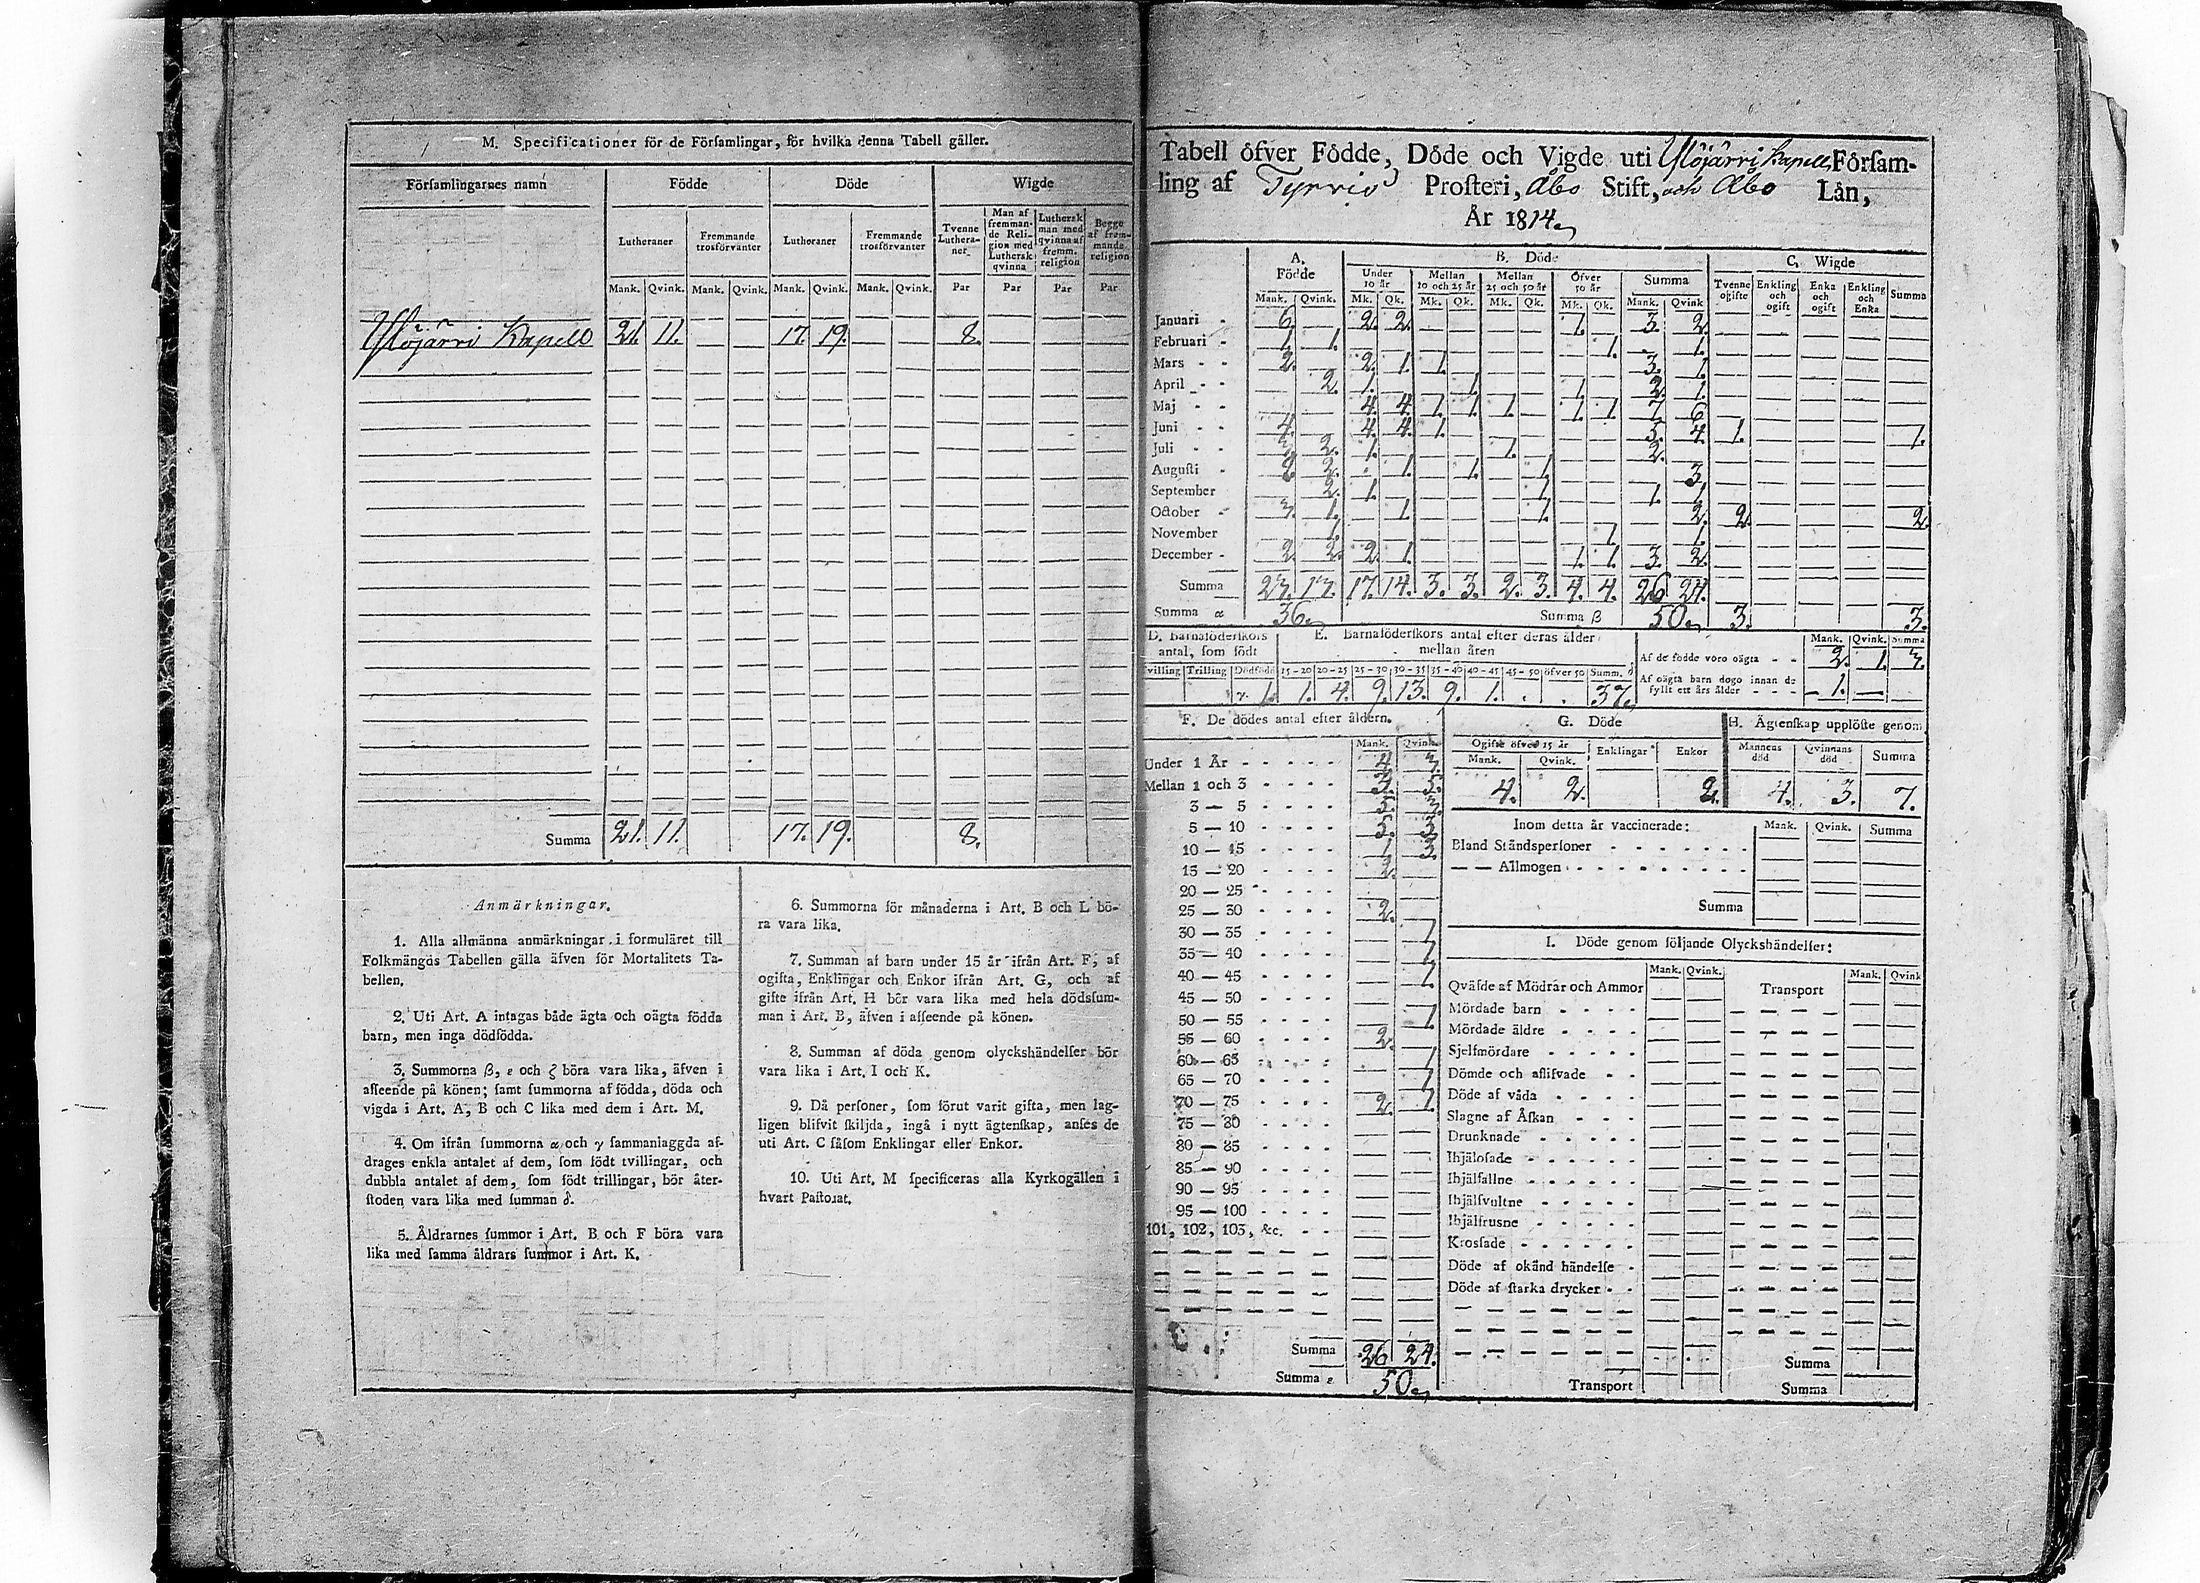 M. Specificationer för de Församlingar, för hvilka denna Tabell gäller.
Församlingarnes namn Födde Döde Wigde
Lutheraner Fremmande trosförvanter Lutheraner Fremmande trosförvanter Tvenne Lutheraner Man af fremmande Religion med Luthersk qvinna Luthersk man med qvinna af fremm. religion Begge af fremmande religion
Mank. Qvink. Mank. Qvink. Mank. Qvink. Mank. Qvink. Par Par Par Par
Ylöjärvi Kapell 21. 11. — — 17. 19. — — 8.
Summa 21. 11. 17. 19. 8.
Anmärkningar.
1. Alla allmänna anmärkningar i formuläret till
Folkmängds Tabellen gälla äfven för Mortalitets Ta-
bellen.
2. Uti Art. A intagas både ägta och oägta födda
barn, men inga dödfödda.
3. Summorna β, ε och ζ böra vara lika, äfven i
afseende på könen; samt summorna af födda, döda och
vigda i Art. A, B och C lika med dem i Art. M.
4. Om ifrån summorna α och γ sammanlaggda af-
drages enkla antalet af dem, som födt tvillingar, och
dubbla antalet af dem, som födt trillingar, bör åter-
stoden vara lika med summan δ.
5. Åldrarnes summor i Art. B och F böra vara
lika med samma åldrars summor i Art. K.
6. Summorna för månaderna i Art. B och L bö-
ra vara lika.
7. Summan af barn under 15 år ifrån Art. F, af
ogifta, Enklingar och Enkor ifrån Art. G, och af
gifte ifrån Art. H bör vara lika med hela dödssum-
man i Art. B, äfven i afseende på könen.
8. Summan af döda genom olyckshändelser bör
vara lika i Art. I och K.
9. Då personer, som förut varit gifta, men lag-
ligen blifvit skiljda, ingå i nytt ägtenskap, anses de
uti Art. C såsom Enklingar eller Enkor.
10. Uti Art. M specificeras alla Kyrkogällen i
hvart Pastorat.
Tabell öfver Födde, Döde och Vigde uti Ylöjärvi Kapell Försam-
ling af Tyrvis Prosteri, Åbo Stift, och Åbo Län,
År 1814.
A. Födde B. Döde C. Wigde
Under 10 år Mellan 10 och 25 år Mellan 25 och 50 år Öfver 50 år Summa Tvenne ogifte Enkling och ogift Enka och ogift Enkling och Enka Summa
Mank. Qvink. Mk. Qk. Mk. Qk. Mk. Qk. Mk. Qk. Mank. Qvink
Januari 6. — 2. 2. — — — — 1. — 3. 2.
Februari 1. 1. — — — — — — — 1. — 1.
Mars 2. — 2. 1. 1. — — — — — 3. 1.
April — 2. 1. — — 1. — — 1. — 2. 1.
Maj — — 4. 4. 1. 1. 1. — 1. 1. 7. 6.
Juni 4. — 4. 4. 1. — — — — — 5. 4. 1. 1.
Juli 3. 2. 1. — — — 1. — — — 2. —
Augusti 2. 2. — 1. — 1. — 1. — — — 3.
September — 2. 1. — — — — 1. — — 1. 1.
October 3. 1. — 1. — — — 1. — — — 2. 2. 2.
November — 1. — — — — — — — 1. — 1.
December 2. 2. 2. 1. — — — — 1. 1. 3. 2.
Summa 23. 13. 17. 14. 3. 3. 2. 3. 4. 4. 26 24.
Summa α 36. Summa β 50. 3. 3.
D. Barnaföderskors antal, som födt E. Barnaföderskors antal efter deras ålder mellan åren
Tvilling Trilling Dödfödd 15–20 20–25 25–30 30–35 35–40 40–45 45–50 öfver 50 Summ. δ
γ. 1. 1. 4. 9. 13. 9. 1. . . 37.
Mank. Qvink. Summa
Af de födde voro oägta 2. 1. 3.
Af oägta barn dogo innan de fyllt ett års ålder 1. —
F. De dödes antal efter åldern.
Mank. Qvink.
Under 1 År 4. 3.
Mellan 1 och 3 3. 5.
3 — 5 5. 3.
5 — 10 5. 3.
10 — 15 1. 3.
15 — 20 2.
20 — 25
25 — 30 2.
30 — 35 1
35 — 40 1
40 — 45 1.
45 — 50
50 — 55 1.
55 — 60 2.
60 — 65 1
65 — 70 1
70 — 75 2. 1.
75 — 80
80 — 85
85 — 90
90 — 95
95 — 100
101, 102, 103, &c.
Summa 26 24.
Summa ε 50.
G. Döde
Ogifte öfver 15 år Enklingar Enkor
Mank. Qvink.
4. 2. 2.
H. Ägtenskap upplöste genom
Mannens död Qvinnans död Summa
4. 3. 7.
Inom detta år vaccinerade: Mank. Qvink. Summa
Bland Ståndspersoner
— — Allmogen
Summa
I. Döde genom följande Olyckshändelser:
Mank. Qvink. Mank. Qvink
Qväfde af Mödrar och Ammor Transport
Mördade barn
Mördade äldre
Sjelfmördare
Dömde och aflifvade
Döde af våda
Slagne af Åskan
Drunknade
Ihjälosade
Ihjälfallne
Ihjälsvultne
Ihjälfrusne
Krossade
Döde af okänd händelse
Döde af starka drycker
Summa
Transport Summa